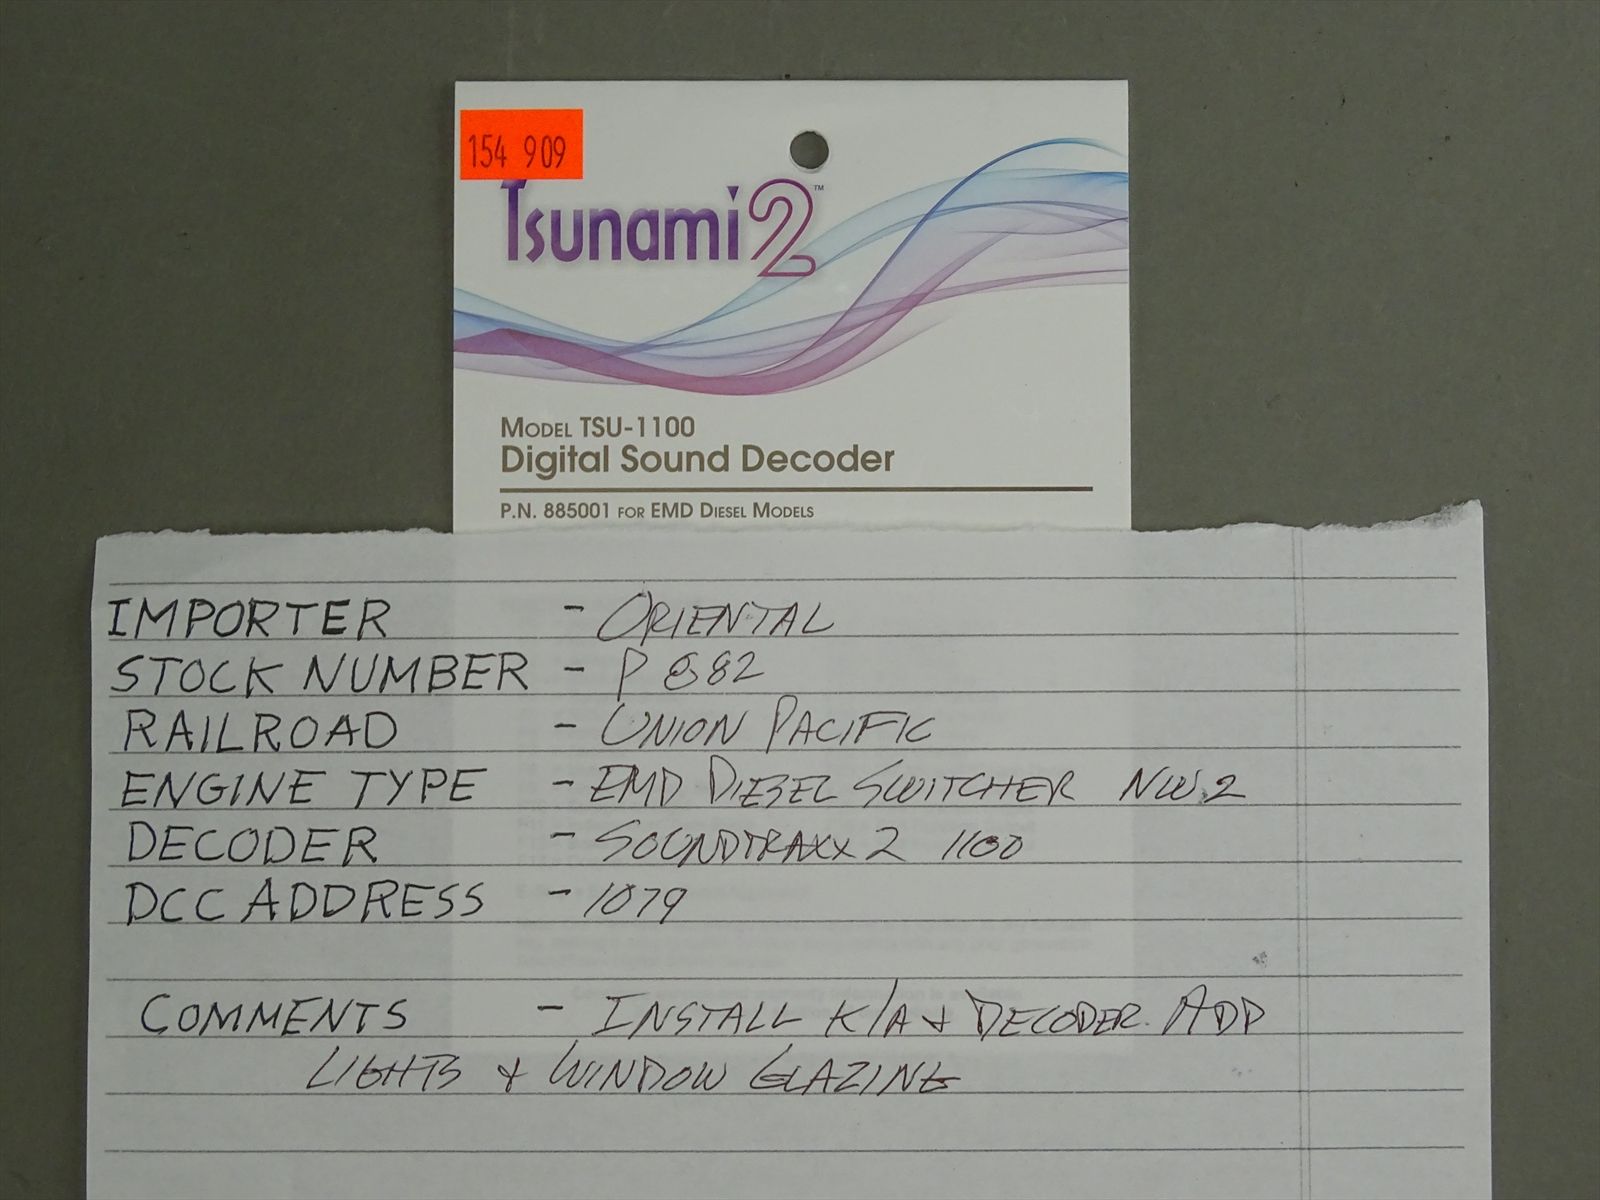 154 909
Tsunami2™
MODEL TSU-1100
Digital Sound Decoder
P.N. 885001 FOR EMD DIESEL MODELS
IMPORTER - ORIENTAL
STOCK NUMBER - P 882
RAILROAD - UNION PACIFIC
ENGINE TYPE - EMD DIESEL SWITCHER NW.2
DECODER - SOUNDTRAXX 2 1100
DCC ADDRESS - 1079
COMMENTS - INSTALL K/A & DECODER. ADD
LIGHTS & WINDOW GLAZING